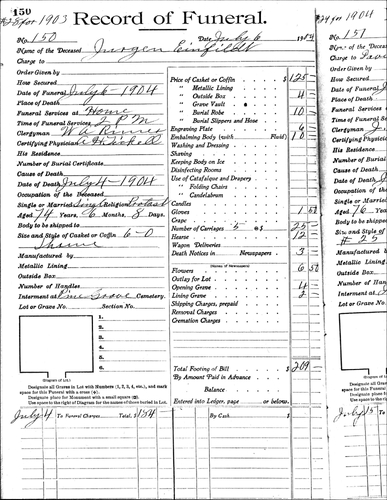 150
#28 for 1903
Record of Funeral.
No. 150
Date July 6 1904
Name of the Deceased Jurgen Einfeldt
Charge to
Order Given by
How Secured
Date of Funeral July 6 - 1904
Place of Death
Funeral Services at Home
Time of Funeral Services 2 PM
Clergyman W A
Certifying Physician
His Residence
Number of Burial Certificate
Cause of Death
Date of Death July 4 - 1904
Occupation of the Deceased
Single or Married Single Religion Protestant
Aged 74 Years, 6 Months, 8 Days
Body to be shipped to
Size and Style of Casket or Coffin 6-0
Manufactured by
Metallic Lining
Outside Box
Number of Handles
Interment at Pine Grove Cemetery.
Lot or Grave No. Section No.
1.
2.
3.
4.
5.
6.
(Diagram of Lot.)
Designate all Graves in Lot with Numbers (1, 2, 3, 4, etc.), and mark
space for this Funeral with a cross (+).
Designate place for Monument with a small square (□).
Use space to the right of Diagram for the names of those buried in Lot.
Price of Casket or Coffin $125
" Metallic Lining
" Outside Box 4
" Grave Vault
" Burial Robe 10
" Burial Slippers and Hose
Engraving Plate 6
Embalming Body (with Fluid) 10
Washing and Dressing
Shaving
Keeping Body on Ice
Disinfecting Rooms
Use of Catafalque and Drapery
" Folding Chairs
" Candelabrum
Candles
Gloves 1 50
Crape
Number of Carriages 5 @ 5 25
Hearse 12
Wagon Deliveries
Death Notices in Newspapers 3
(Names of Newspapers)
Flowers 6 50
Outlay for Lot
Opening Grave 4
Lining Grave 2
Shipping Charges, prepaid
Removal Charges
Cremation Charges
Total Footing of Bill $209
By Amount Paid in Advance
Balance
Entered into Ledger, page or below.
July 4 To Funeral Charges Total, $184
By Cash $
#24 for 1904
No. 151
Name of the Deceased
Charge to
Order Given by
How Secured
Date of Funeral
Place of Death
Funeral Services
Time of Funeral
Clergyman
Certifying Physician
His Residence
Number of Burial
Cause of Death
Date of Death
Occupation of the
Single or Married
Aged 76
Body to be shipped
Size and Style of
# 25
Manufactured by
Metallic Lining
Outside Box
Number of Handles
Interment at
Lot or Grave No.
(Diagram of
Designate all
space for this F
Designate place
Use space to th
July 15